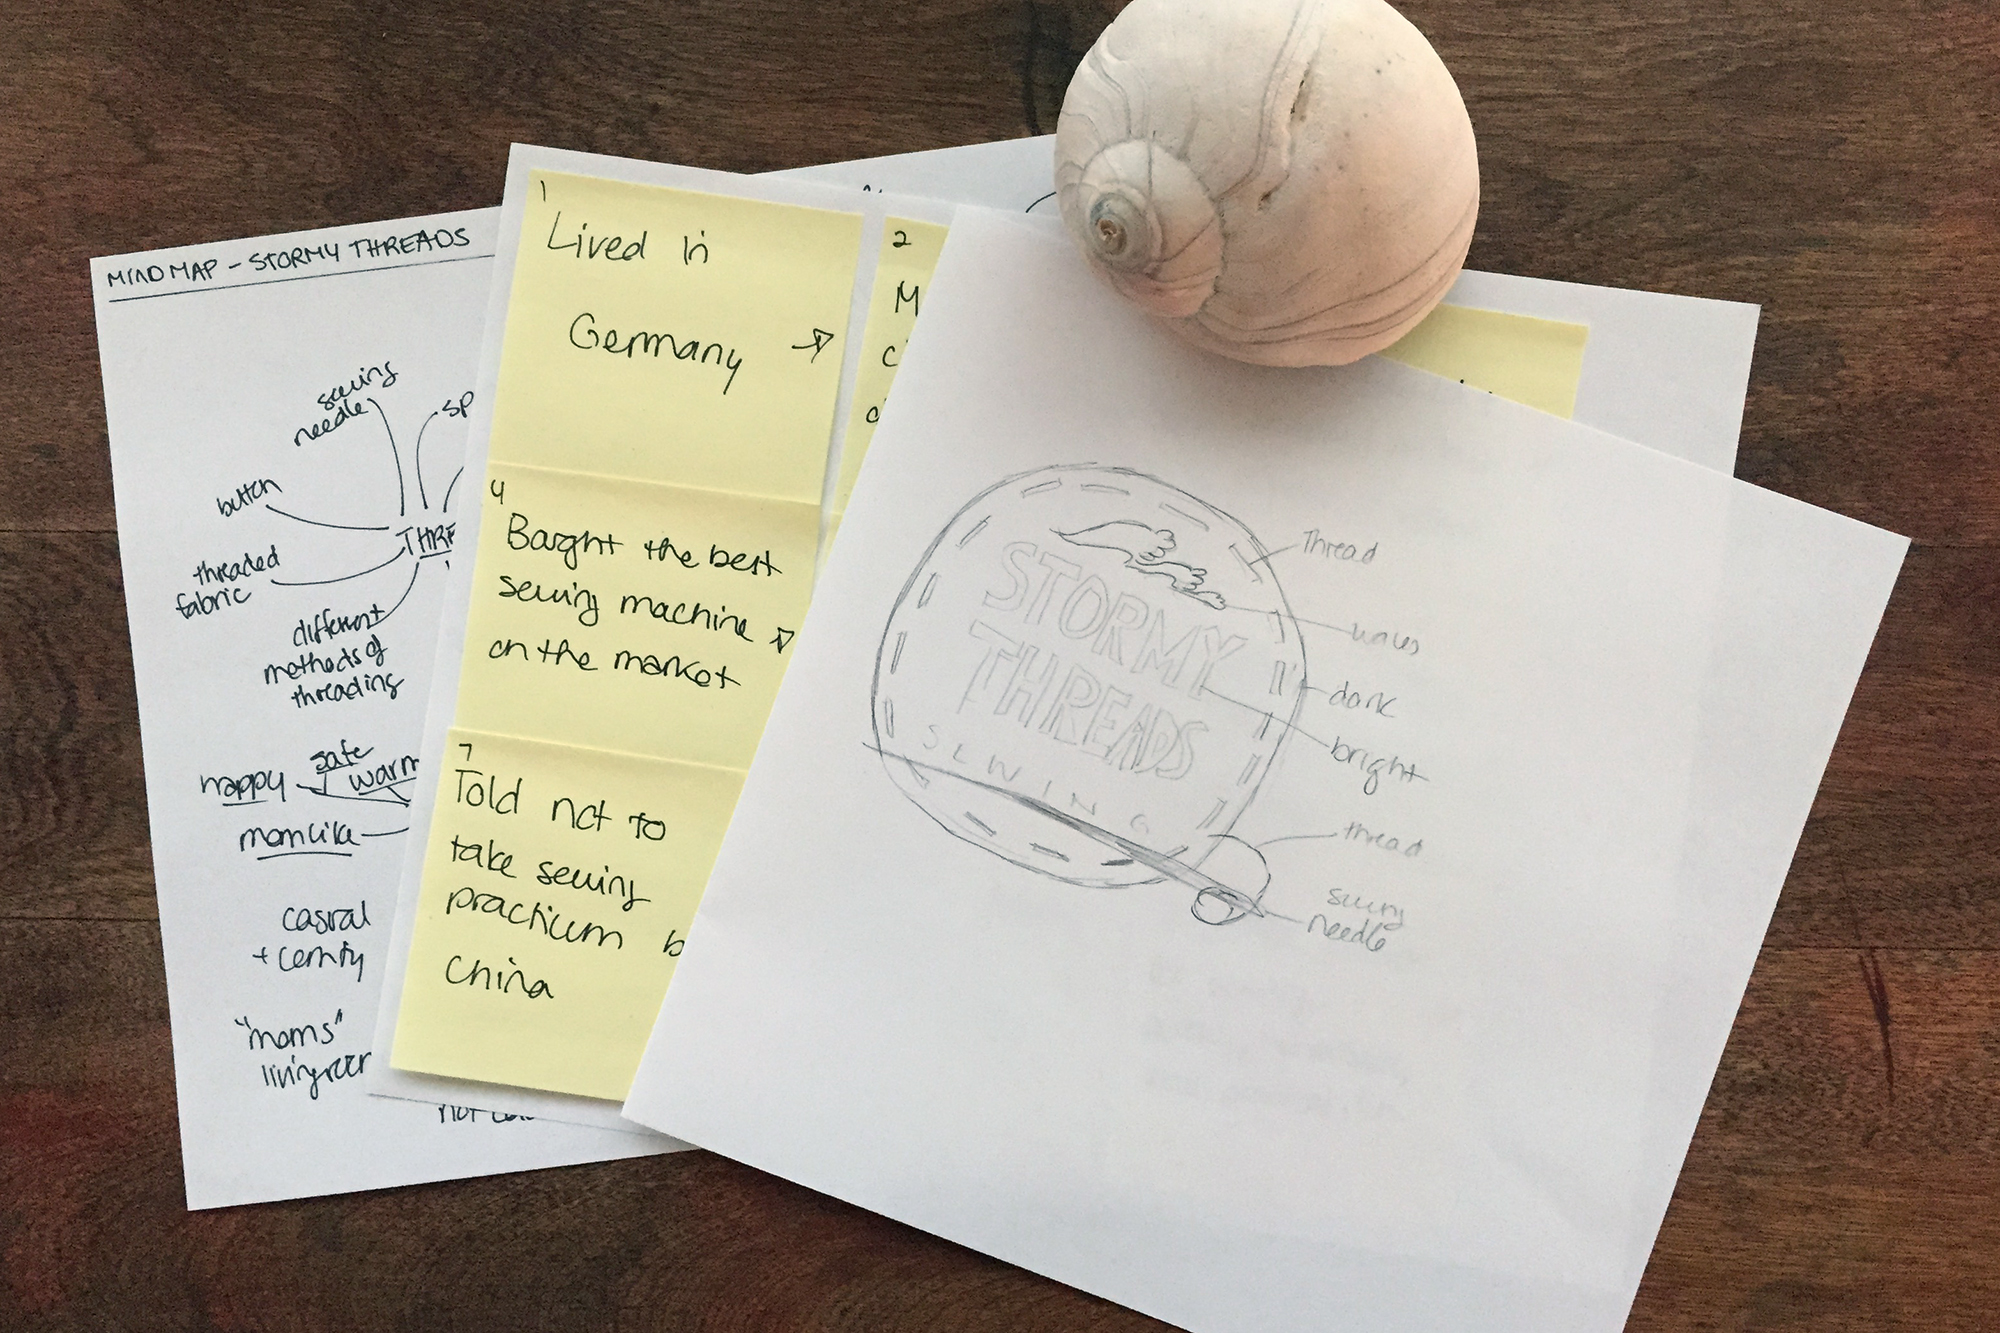 MIND MAP - STORMY THREADS
sewing
needle
sp
button
THRE
threaded
fabric
different
methods of
threading
happy
safe
warm
momlike
casual
+ comfy
"moms"
1
Lived in
Germany
2
M
c
4
Bought the best
sewing machine
on the market
7
Told not to
take sewing
practicum b
China
STORMY
THREADS
SEWING
Thread
waves
dark
bright
thread
sewing
needle